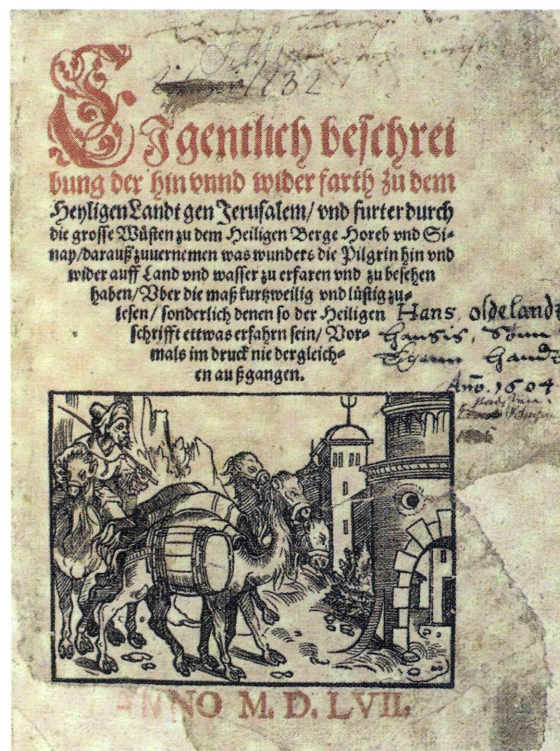 1732
EIgentlich beschrei
bung der hin vnnd wider farth zu dem
Heyligen Landt gen Jerusalem/ vnd furter durch
die grosse Wüsten zu dem Heiligen Berge Horeb vnd Si-
nay/darauß zuuernemen was wunders die Pilgrin hin vnd
wider auff Land vnd wasser zu erfaren vnd zu besehen
haben/ Vber die maß kurtzweilig vnd lüstig zu-
lesen/ sonderlich denen so der Heiligen
schrifft ettwas erfahrn sein/ Vor-
mals im druck nie dergleich-
en außgangen.
Hans oldelandt
Hansis, Sönn
Handt
Año. 1604
ANNO M. D. LVII.